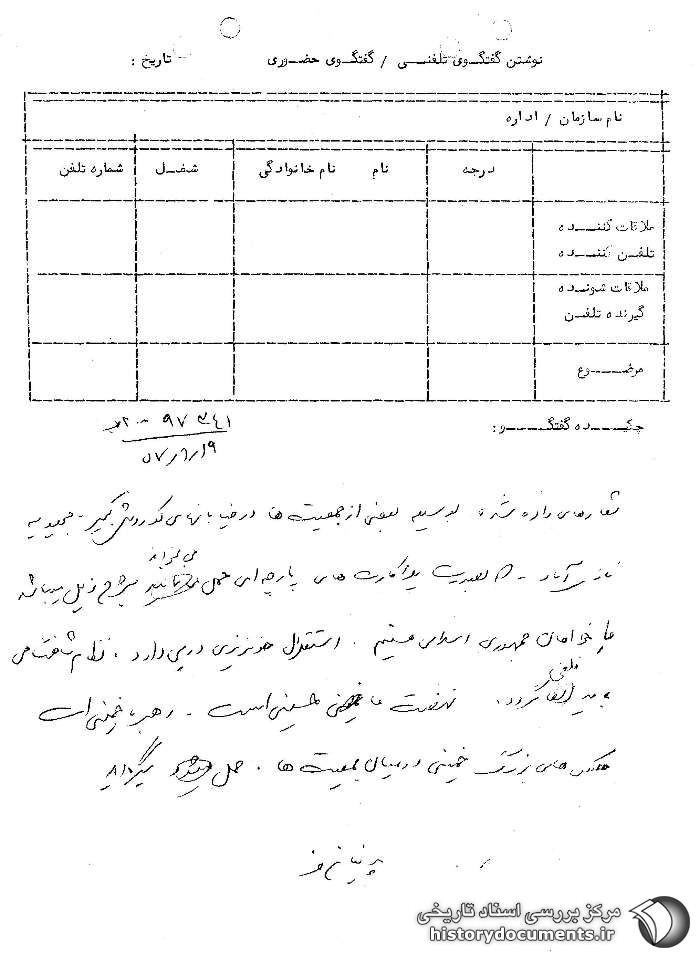 نوشتن گفتگوی تلفنی / گفتگوی حضوری تاریخ :
نام سازمان / اداره
درجه نام نام خانوادگی شغل شماره تلفن
ملاقات کننده
تلفن کننده
ملاقات شونده
گیرنده تلفن
موضوع
چکیده گفتگو :
شعارهای داده شده توسط بعضی از جمعیت ها در خیابانهای کوروش کبیر - جمشیدیه
نازی آباد - که بصورت پلاکارت های پارچه ای حمل می شرح ذیل میباشد
ما خواهان جمهوری اسلامی هستیم . استقلال خونریزی در پی دارد . نظام شاهنشاهی
باید گردد . نهضت ما حسینی است - رهبر ما خمینی است
عکس های بزرگ خمینی در میان جمعیت ها . حمل میگردد
مرکز بررسی اسناد تاریخی
historydocuments.ir